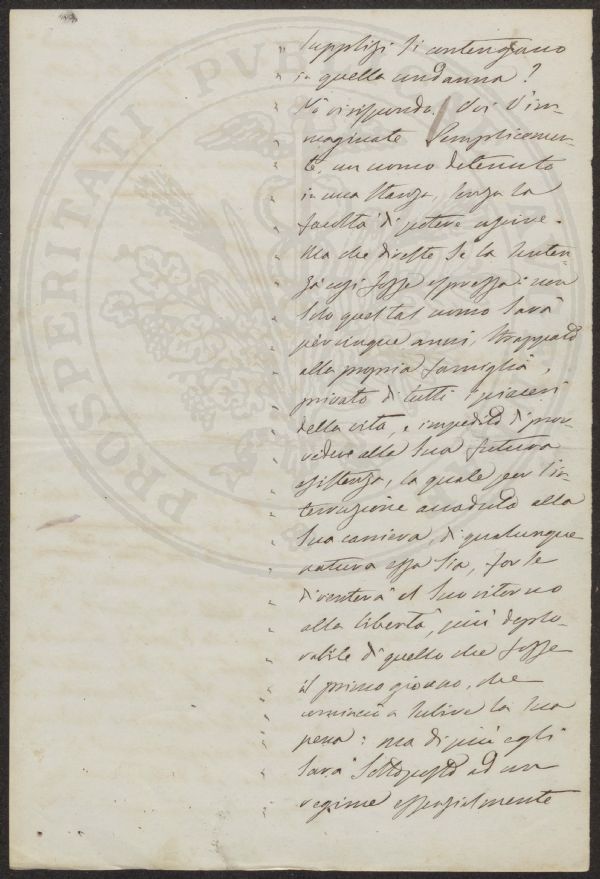 " supplizi si contengano
" in quella condanna?
" Vò rispondo. Voi v'im-
" maginate semplicemen-
" te, un uomo detenuto
" in una stanza, senza la
" facoltà di potere uscire.
" Ma che direste, se la senten-
" za così fosse espressa: non
" solo quest'uomo sarà
" per cinque anni, strappato
" alla propria famiglia,
" privato di tutti i piaceri
" della vita, e impedito di prov-
" vedere alla sua futura
" esistenza, la quale per l'in-
" terruzione accaduta alla
" sua carriera, di qualunque
" natura essa sia, forse
" diventerà al suo ritorno
" alla libertà, più deplo-
" rabile di quello che fosse
" il primo giorno, che
" cominciò a subire la sua
" pena: ma di più egli
" sarà sottoposto ad un
" regime essenzialmente
PROSPERITATI PUBLICAE